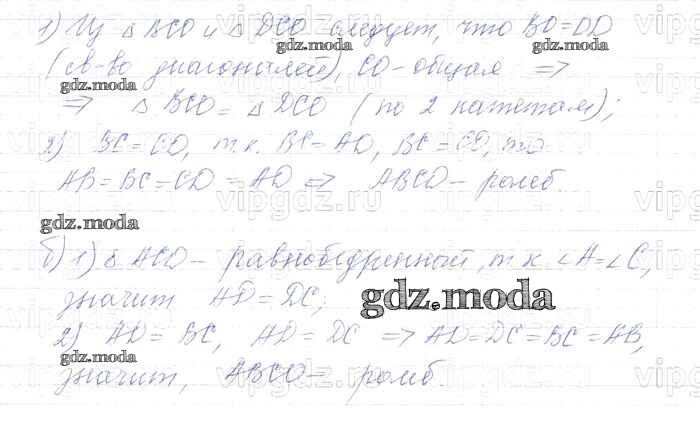 1) Из △ BCO и △ DCO следует, что BO=OD
(св-во диагоналей), CO-общая ⇒
⇒ △ BCO = △ DCO (по 2 катетам);
2) BC=CD, т.к. BC=AD, BC=CD, то
AB=BC=CD=AD ⇒ ABCD- ромб.
б) 1) △ ACD- равнобедренный, т.к. ∠A=∠C,
значит AD=DC;
2) AD=BC, AD=DC ⇒ AD=DC=BC=AB,
значит, ABCD- ромб.
gdz.moda
gdz.moda
gdz.moda
gdz.moda
gdz.moda
gdz.moda
gdz.moda
gdz.moda
vipgdz.ru